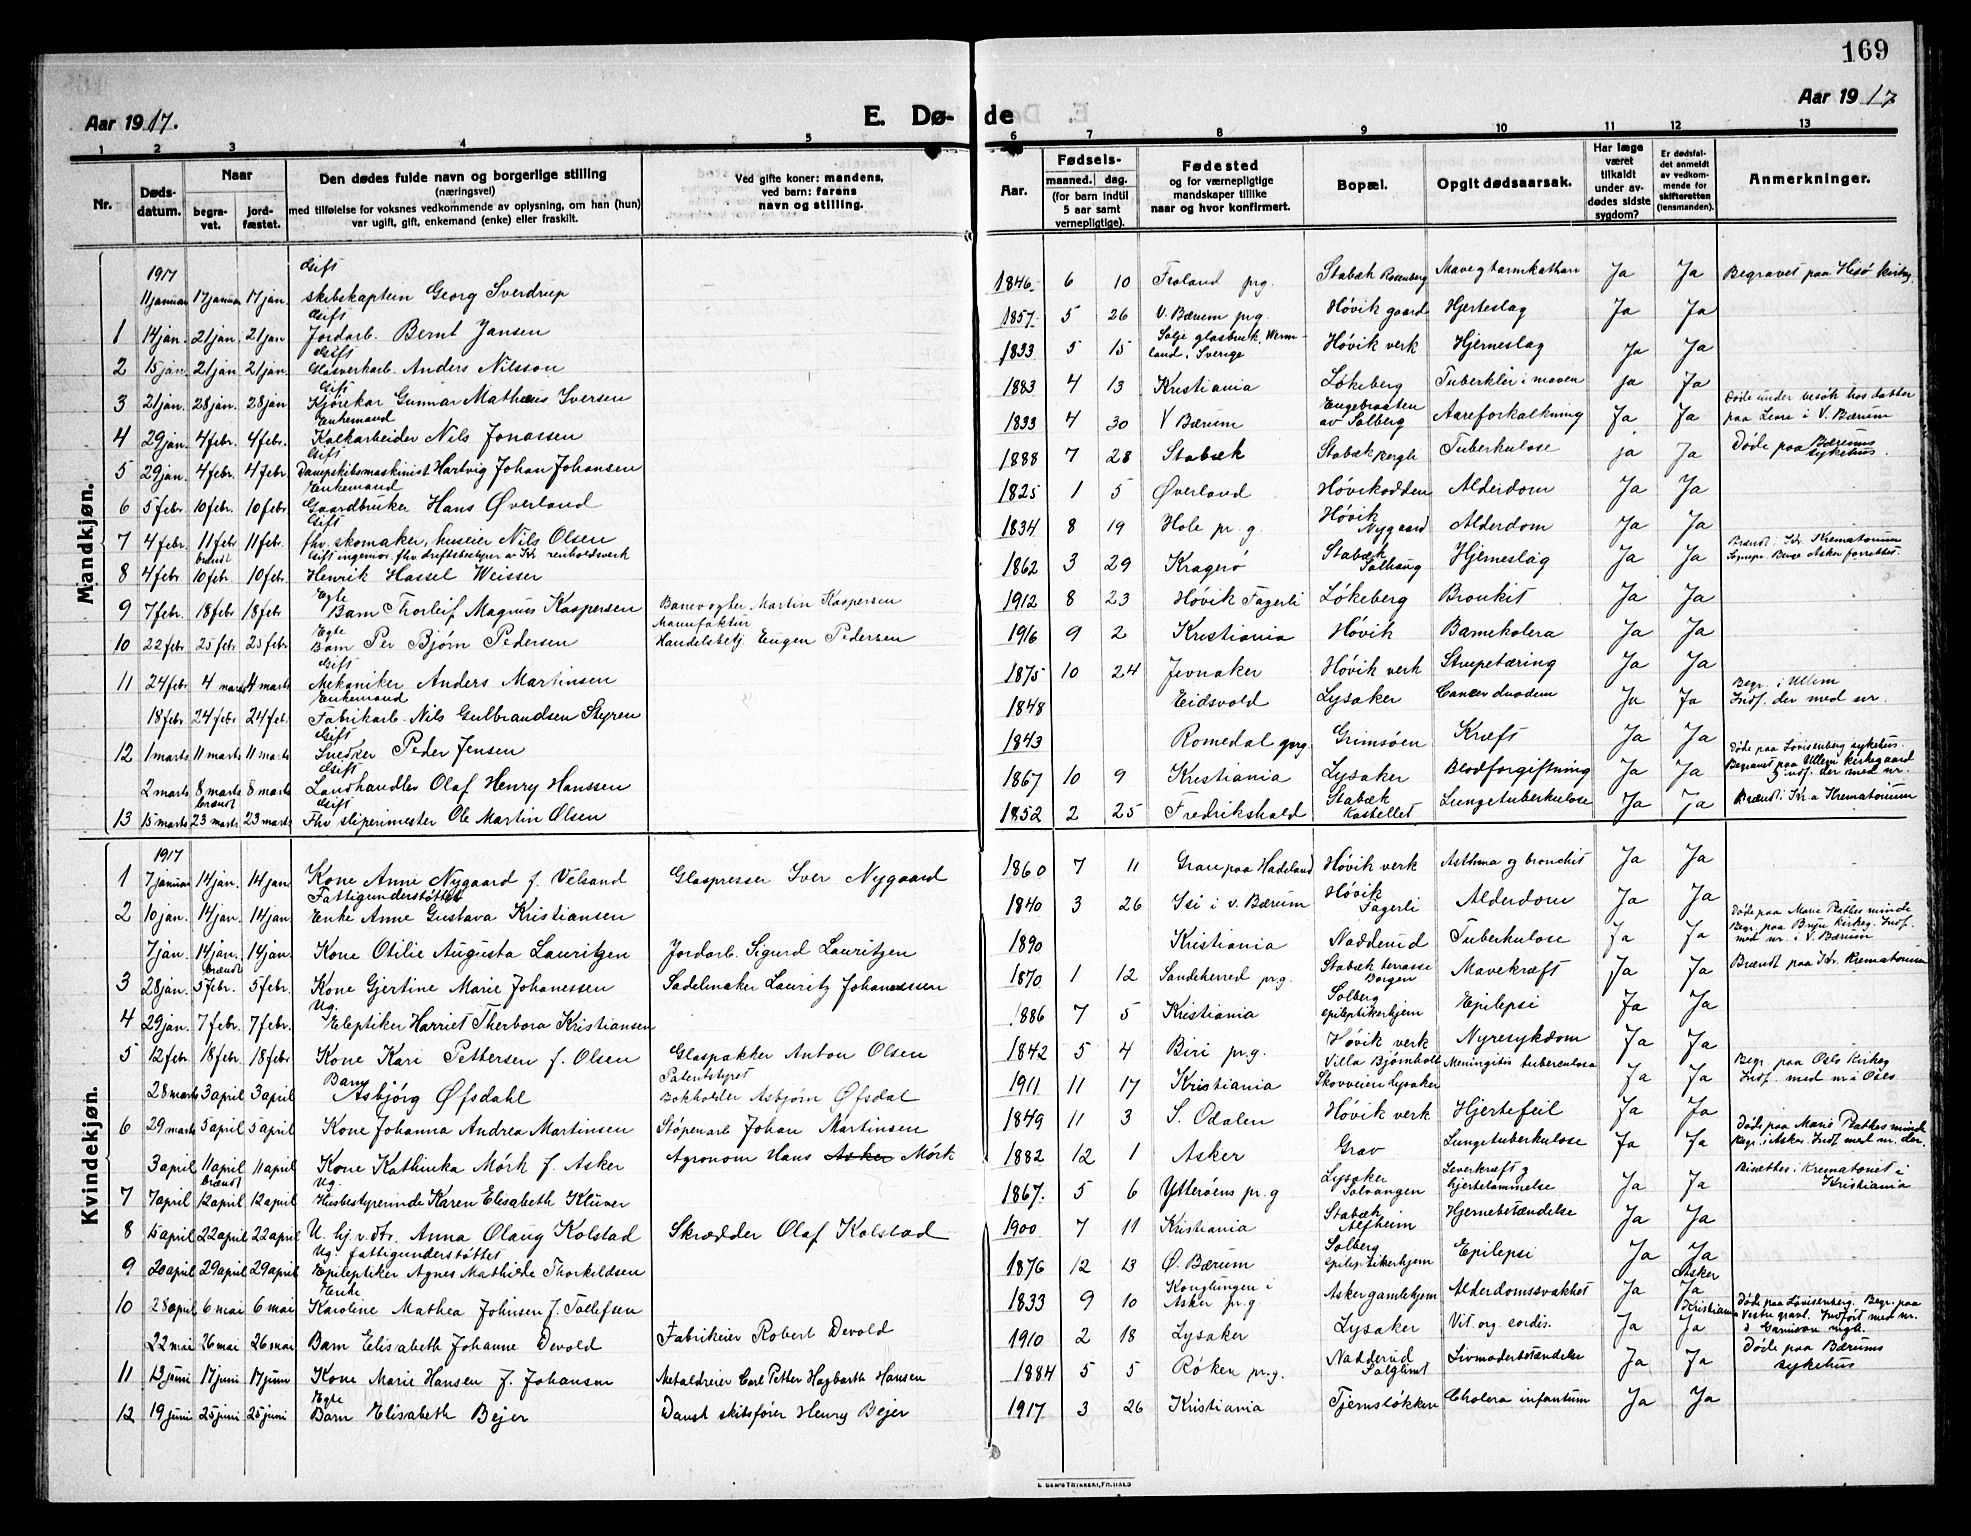 169
Aar 1917.
E. Døde
Aar 1917
1 2 3 4 5 6 7 8 9 10 11 12 13
Nr.
Dødsdatum.
Naar
begravet.
jordfæstet.
Den dødes fulde navn og borgerlige stilling
(næringsvei)
med tilføielse for voksnes vedkommende av oplysning, om han (hun)
var ugift, gift, enkemand (enke) eller fraskilt.
Ved gifte koner: mandens,
ved barn: farens
navn og stilling.
Aar.
Fødsels-
maaned. dag.
(for barn indtil
5 aar samt
vernepligtige).
Fødested
og for værnepligtige
mandskaper tillike
naar og hvor konfirmert.
Bopæl.
Opgit dødsaarsak.
Har læge
været
tilkaldt
under av-
dødes sidste
sygdom?
Er dødsfal-
det anmeldt
av vedkom-
mende for
skifteretten
(lensmanden).
Anmerkninger.
Mandkjøn.
1917 Gift
11 januar 17 januar 17 jan. skibskaptein Georg Sverdrup 1846 6 10 Froland prg. Stabæk Rosenberg Mavegtarmkathar Ja Ja Begravet paa Hisø kirkeg.
Gift
1 14 jan. 21 jan. 21 jan Jordarb. Bernt Jansen 1857 5 26 V. Bærum prg. Høvik gaard Hjerteslag Ja Ja
Gift
2 15 jan. 21 jan 21 jan. Glasverkarb. Anders Nilsson 1833 5 15 Salje glasbruk, Werm-
land, Sverige Høvik verk Hjerneslag Ja Ja
Gift
3 21 jan. 28 jan. 28 jan Kjørekar Gunnar Mathæus Iversen 1883 4 13 Kristiania Løkeberg Tuberkler i maven ja Ja
Enkemand
4 29 jan. 4 febr. 4 febr. Kalkarbeider Nils Jonassen 1833 4 30 V Bærum Engebraaten
av Solberg Aareforkalkning Ja Ja Døde under besøk hos datter
paa Leire i V. Bærum
Gift
5 29 jan. 4 febr. 4 febr Dampskibsmaskinist Hartvig Johan Johansen 1888 7 28 Stabæk Stabæk Bergli Tuberkulose ja Ja Døde paa Bærums
sykehus.
Enkemand
6 5 febr. 10 febr. 10 febr Gaardbruker Hans Øverland 1825 1 5 Øverland Høvikodden Alderdom Ja Ja
Gift
7 4 febr. 11 febr 11 febr. fhv. skomaker, huseier Nils Olsen 1834 8 19 Hole pr. g Høvik
Nygaard Alderdom Ja Ja
brændt Gift ingeniør fhv driftsbestyrer av Kr. renholdsverk
8 4 febr. 10 febr. 10 febr. Henrik Hassel Weisser 1862 3 29 Kragerø Stabæk
Solhaug Hjerneslag Ja Ja Brændt i Kr. Krematorium
Sognepr. Berve Asker forrettet.
Egte
9 7 febr. 18 febr 18 febr. Barn Thorleif Magnus Kaspersen Banevogter Martin Kaspersen 1912 8 23 Høvik Fagerli Løkeberg Bronkit Ja Ja
Egte Manufaktur
10 22 febr 25 febr 25 febr Barn Per Bjørn Pedersen Handelsbetj. Eugen Pedersen 1916 9 2 Kristiania Høvik Barnekolera Ja Ja
Gift
11 24 febr 4 marts 4 marts Mekaniker Anders Martinsen 1875 10 24 Jevnaker Høvik verk Strupetæring Ja Ja
Enkemand
18 febr. 24 febr. 24 feb. Fabrikarb. Nils Gulbrandsen Styren 1848 Eidsvold Lysaker Cancer duodem Ja Ja Begr. i Ullern
Indf. der med nr.
Gift
12 1 marts 11 marts 11 marts Snedker Peder Jensen 1843 Romedal prg. Grimsøen Kræft Ja Ja
Gift
2 marts 8 marts 8 marts Landhandler Olaf Henry Hanssen 1867 10 9 Kristiania Lysaker Blodforgiftning Ja Ja Døde paa Lovisenberg sykehus.
Begravet paa Ullern kirkegaard
indf. der med nr.
brændt Gift
13 15 marts 23 marts 23 marts Fhv sliperimester Ole Martin Olsen 1852 2 25 Fredrikshald Stabæk
Kastellet Lungetuberkulose Ja Ja Brændt i Kr.a Krematorium
Kvindekjøn.
1917
1 7 januar 14 jan. 14 jan. Kone Anne Nygaard f. Velsand Glaspresser Iver Nygaard 1860 7 11 Gran paa Hadeland Høvik verk Asthma og bronchit Ja Ja
Fattigunderstøttet
2 10 jan. 14 jan. 14 jan. Enke Anne Gustava Kristiansen 1840 3 26 Isi i V. Bærum Høvik
Fagerli Alderdom Ja Ja
7 jan. 14 jan. 14 jan. Kone Otilie Augusta Lauritzen Jordarb. Sigurd Lauritzen 1890 Kristiania Nadderud Tuberkulose Ja Ja Døde paa Marie Plathes minde
Begr. paa Bryn kirkeg. Indf.
med nr. i V. Bærum
brændt
3 28 jan. 5 febr. 5 febr. Kone Gjertine Marie Johanessen Sadelmaker Lauritz Johannessen 1870 1 12 Sandeherred pr. g. Stabæk terrasse
Borgen Mavekræft Ja Ja Brændt paa Kr. Krematorium
Ug.
4 29 jan. 7 febr. 7 febr. Eleptiker Harriet Therbora Kristiansen 1886 7 5 Kristiania Solberg
epileptikerhjem Epilepsi Ja Ja
5 12 febr. 18 febr. 18 febr Kone Kari Pettersen f. Olsen Glaspakker Anton Olsen 1842 5 4 Biri pr.g. Høvik verk Nyresykdom Ja Ja
Barn Patentstyret
28 marts 3 april 3 april Asbjörg Øfsdahl Bokholder Asbjørn Øfsdal 1911 11 17 Kristiania Villa Bjørnholt
Skovveien Lysaker Meningitis tuberculosa Ja Ja Begr. paa Oslo kirkeg
Indf. med nr i Oslo
6 29 marts 5 april 5 april Kone Johanna Andrea Martinsen Støperiarb Johan Martinsen 1849 11 3 S. Odalen Høvik verk Hjertefeil Ja Ja
3 april 11 april 11 april Kone Kathinka Mörk f. Asker Agronom Hans Asker Mörk 1882 12 1 Asker Grav Lungetuberkulose Ja Ja Døde paa Marie Plathes minde
Begr. i Asker. Indf med nr. der.
brændt Ug.
7 7 april 12 april 12 april Husbestyrerinde Karen Elisabeth Klüver 1867. 5 6 Ytterøens pr. g Lysaker
Solvangen Leverkræft g
hjertelammelse Ja Ja Bisættes i Krematoriet i
Kristiania
8 15 april 22 april 22 april U. hj. v. dtr. Anna Olaug Kolstad Skrædder Olaf Kolstad 1900 7 11 Kristiania Stabæk
Alfheim Hjernebetændelse Ja Ja
Ug. fattigunderstøttet
9 20 april 29 april 29 april Epileptiker Agnes Mathilde Thorkildsen 1876 12 13 Ø. Bærum Solberg
epileptikerhjem Epilepsi Ja Ja
Enke
10 28 april 6 mai 6 mai Karoline Mathea Johnsen f. Tollefsen 1833 9 10 Konglungen i
Asker pr.g Asker gamlehjem Alderdomssvakhet Ja Asker
Ja
22 mai 26 mai 26 mai Barn Elisabeth Johanne Devold Fabrikeier Robert Devold 1910 2 18 Lysaker Lysaker Vit. org. cordis. Ja Kristiania
Ja Døde paa Lovisenberg. Begr. paa
Vestre gravl. Indført med nr.
i Garnison mgh.
11 13 juni 17 juni 17 juni Kone Marie Hansen f. Johansen Metaldreier Carl Petter Hagbarth Hansen 1884 5 5 Røken pr.g. Nadderud
Solglimt Livmoderbetændelse Ja Ja Døde paa Bærums
sykehus
Egte
12 19 juni 25 juni 25 juni Barn Elisabeth Bejer Dansk skibsfører Henry Bejer 1917 3 26 Kristiania Tjernsløkken Cholera infantum Ja Ja